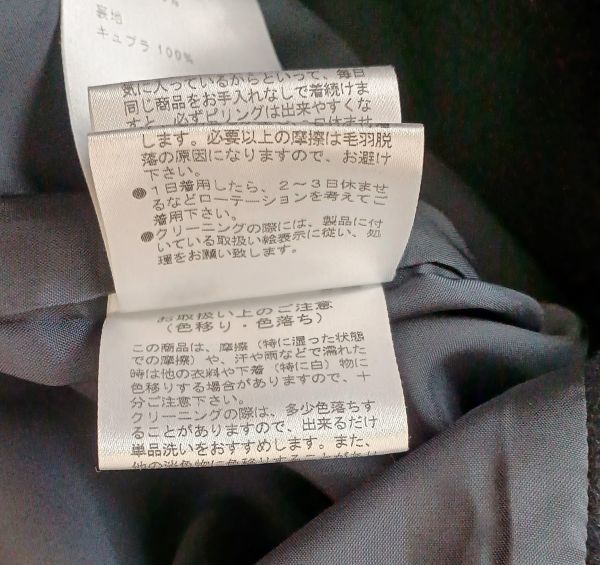 裏地
キュプラ 100%
気に入っているからといって、毎日
同じ商品をお手入れなしで着続けま
すと、必ずピリングは出来やすくな
します。必要以上の摩擦は毛羽脱
落の原因になりますので、お避け
下さい。
●1日着用したら、2～3日休ませ
るなどローテーションを考えてご
着用下さい。
●クリーニングの際には、製品に付
いている取扱い絵表示に従い、処
理をお願い致します。
お取扱い上のご注意
(色移り・色落ち)
この商品は、摩擦(特に湿った状態
での摩擦)や、汗や雨などで濡れた
時は他の衣料や下着(特に白)物に
色移りする場合がありますので、十
分ご注意下さい。
クリーニングの際は、多少色落ちす
ることがありますので、出来るだけ
単品洗いをおすすめします。また、
他の淡色物に色移りすることがあり